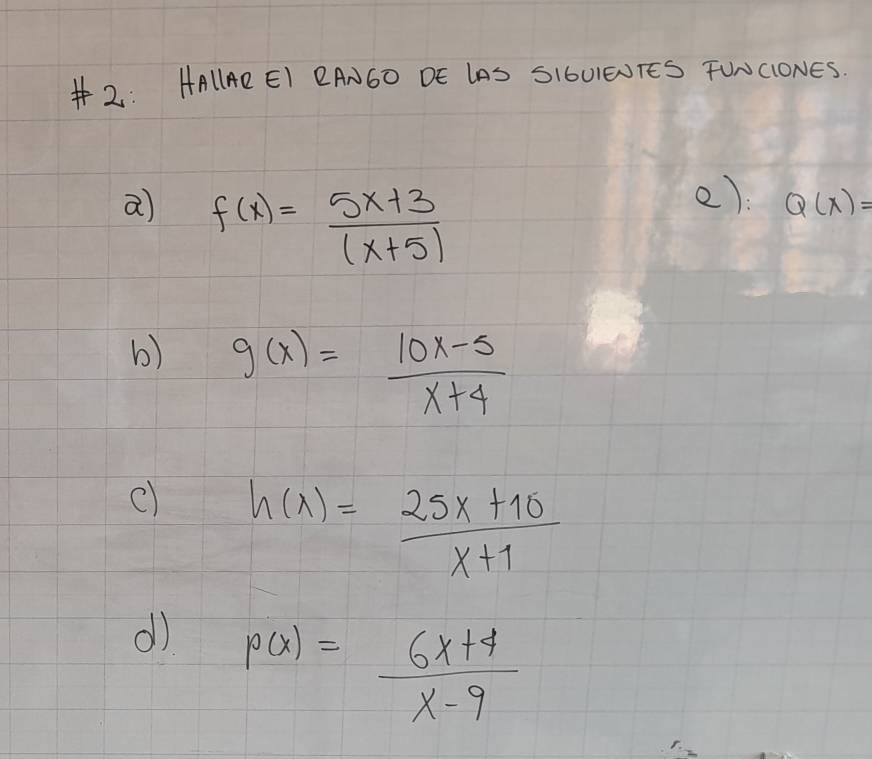 #2: HALLAR El RANGO DE LAS SIGUIENTES FUNCIONES.
a) f(x) = (5x+3)/((x+5))
e): Q(x)=
b) g(x) = (10x-5)/(x+4)
c) h(x) = (25x+10)/(x+1)
d). p(x) = (6x+4)/(x-9)